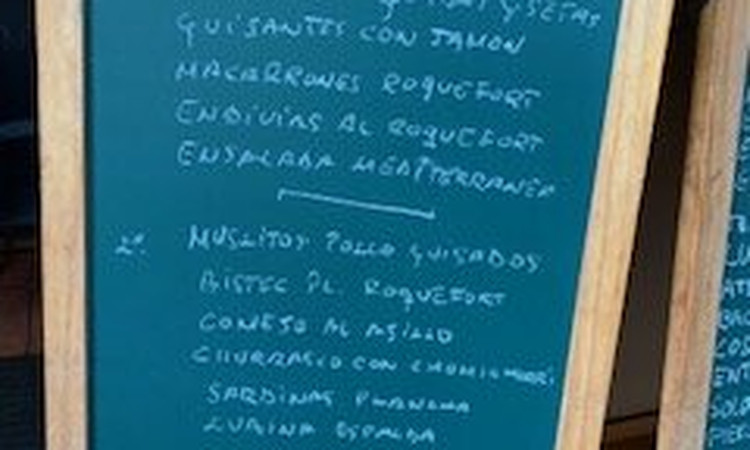 Y SETAS
GUISANTES CON JAMON
MACARRONES ROQUEFORT
ENDIVIAS AL ROQUEFORT
ENSALADA MEDITERRANEA
2º. MUSLITOS POLLO GUISADOS
BISTEC AL ROQUEFORT
CONEJO AL AJILLO
CHURRASCO CON CHIMICHURRI
SARDINAS PLANCHA
LUBINA ESPALDA